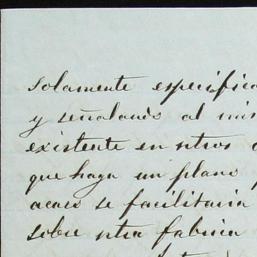 solamente especifica
y señalando al mis
existente en ntros
que haga un plano
acaso se facilitaria
sobre ntra fabrica